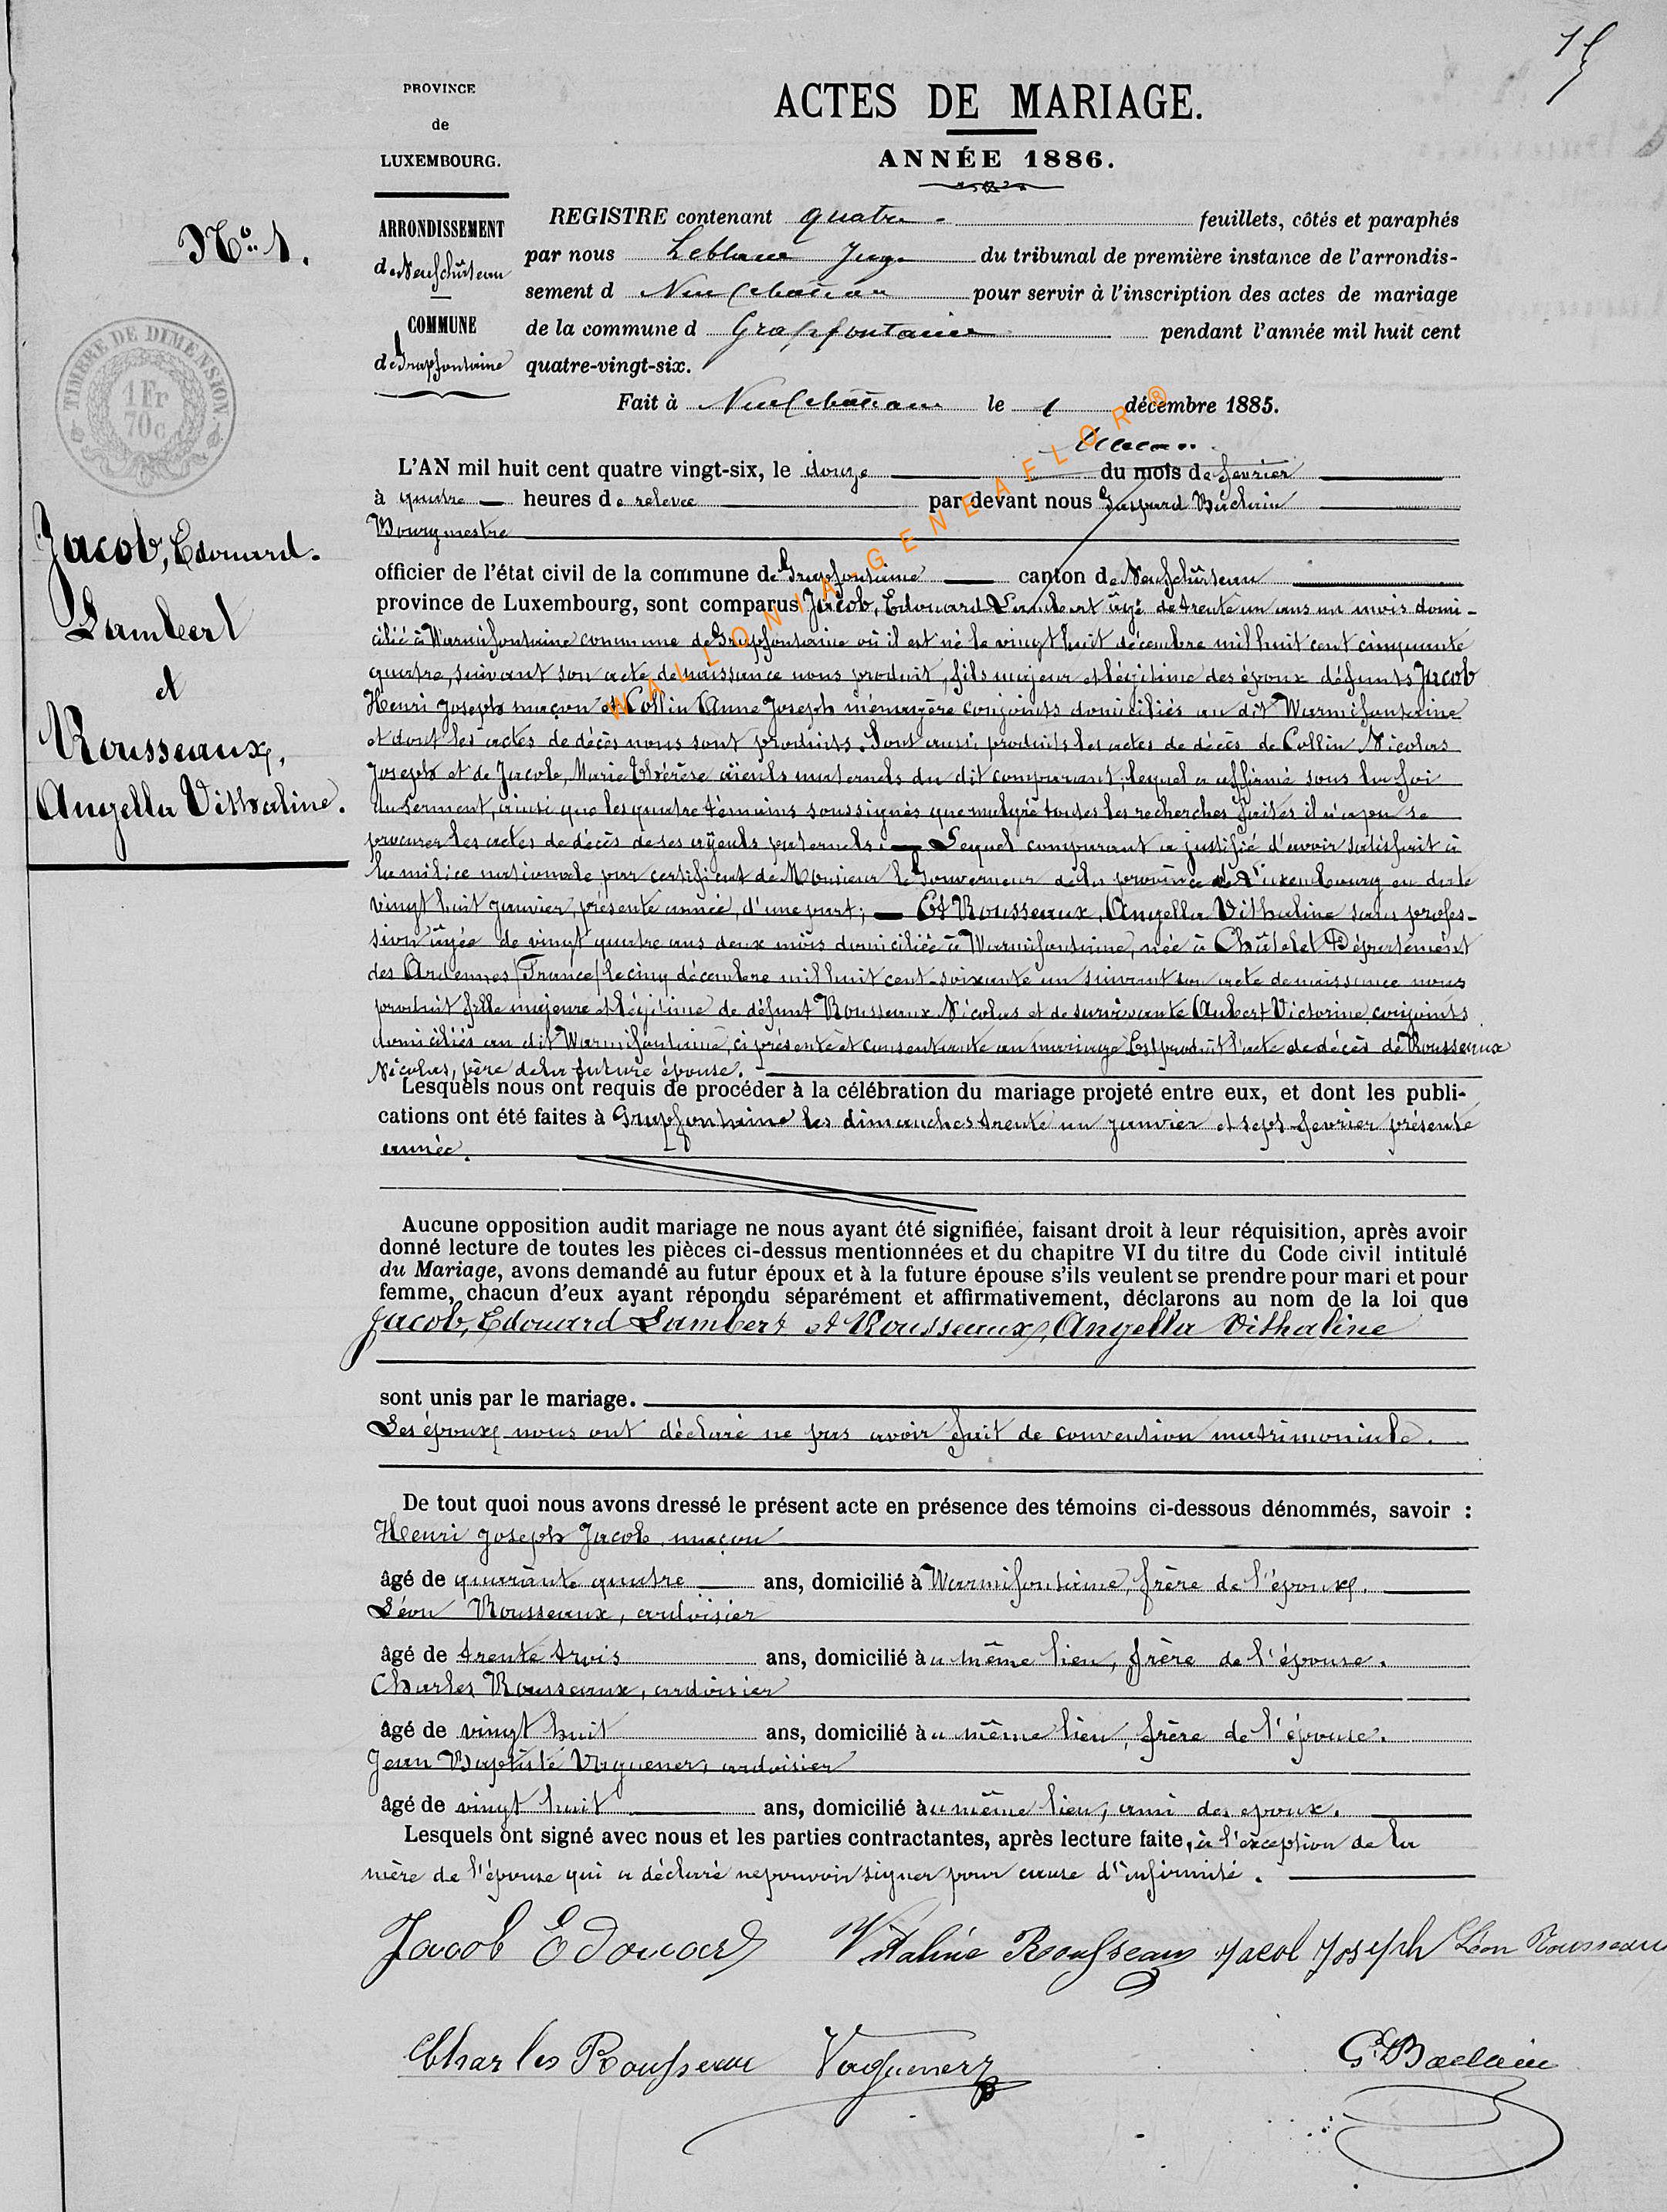 PROVINCE
de
LUXEMBOURG.
ARRONDISSEMENT
de Neufchâteau
COMMUNE
de Grapfontaine
ACTES DE MARIAGE.
ANNÉE 1886.
REGISTRE contenant quatre feuillets, côtés et paraphés
par nous Leblanc Juge du tribunal de première instance de l'arrondis-
sement d Neufchateau pour servir à l'inscription des actes de mariage
de la commune d Grapfontaine pendant l'année mil huit cent
quatre-vingt-six.
Fait à Neufchateau le 1 décembre 1885.
No. 1.
TIMBRE DE DIMENSION
1 Fr
70c
Jacob, Edouard.
Lambert
et
Rousseaux,
Angella Vithaline.
WALLONIA-GENEAELOR®
L'AN mil huit cent quatre vingt-six, le douze du mois de fevrier
à quatre heures de relevée par devant nous Gaspard Baclain
Bourgmestre
officier de l'état civil de la commune de Grapfontaine canton de Neufchâteau
province de Luxembourg, sont comparus Jacob, Edouard Lambert âgé de trente un ans un mois domi-
cilié à Warmifontaine commune de Grapfontaine où il est né le vingt huit décembre mil huit cent cinquante
quatre, suivant son acte de naissance nous produit, fils majeur et légitime des époux défunts Jacob
Henri Joseph maçon et Collin Anne Joseph ménagère conjoints domiciliés au dit Warmifontaine
et dont les actes de décès nous sont produits. Sont aussi produits les actes de décès de Collin Nicolas
Joseph et de Jacob, Marie Thérèse aïeuls maternels du dit comparant, lequel a affirmé sous la foi
du serment, ainsi que les quatre témoins soussignés que malgré toutes les recherches faites il n'a pu se
procurer les actes de décès de ses ayeuls paternels. Lequel comparant a justifié d'avoir satisfait à
la milice nationale par certificat de Monsieur le Gouverneur de la province de Luxembourg en date
vingt huit janvier, présente année, d'une part; Et Rousseaux, Angella Vithaline sans profes-
sion âgée de vingt quatre ans deux mois domiciliée à Warmifontaine, née à Châtelet Département
des Ardennes (France) le cinq décembre mil huit cent soixante un suivant son acte de naissance nous
produit fille majeure et légitime de défunt Rousseaux Nicolas et de survivante Aubert Victorine conjoints
domiciliés au dit Warmifontaine, ci présente et consentante au mariage Est produit l'acte de décès de Rousseaux
Nicolas, père de la future épouse.
Lesquels nous ont requis de procéder à la célébration du mariage projeté entre eux, et dont les publi-
cations ont été faites à Grapfontaine les dimanches trente un janvier et sept fevrier présente
année.
Aucune opposition audit mariage ne nous ayant été signifiée, faisant droit à leur réquisition, après avoir
donné lecture de toutes les pièces ci-dessus mentionnées et du chapitre VI du titre du Code civil intitulé
du Mariage, avons demandé au futur époux et à la future épouse s'ils veulent se prendre pour mari et pour
femme, chacun d'eux ayant répondu séparément et affirmativement, déclarons au nom de la loi que
Jacob, Edouard Lambert et Rousseaux, Angella Vithaline
sont unis par le mariage.
Les époux nous ont déclaré ne pas avoir fait de convention matrimoniale.
De tout quoi nous avons dressé le présent acte en présence des témoins ci-dessous dénommés, savoir :
Henri Joseph Jacob, maçon
âgé de quarante quatre ans, domicilié à Warmifontaine, frère de l'époux.
Léon Rousseaux, ardoisier
âgé de trente trois ans, domicilié au même lieu, frère de l'épouse.
Charles Rousseaux, ardoisier
âgé de vingt huit ans, domicilié au même lieu, frère de l'épouse.
Jean Baptiste Vaguener, ardoisier
âgé de vingt huit ans, domicilié au même lieu, ami des epoux.
Lesquels ont signé avec nous et les parties contractantes, après lecture faite, à l'exception de la
mère de l'épouse qui a déclaré ne pouvoir signer pour cause d'infirmité.
Jacob Edouard Vitaline Rousseaux Jacob Joseph Léon Rousseaux
Charles Rousseau Vaguener G. Baclain